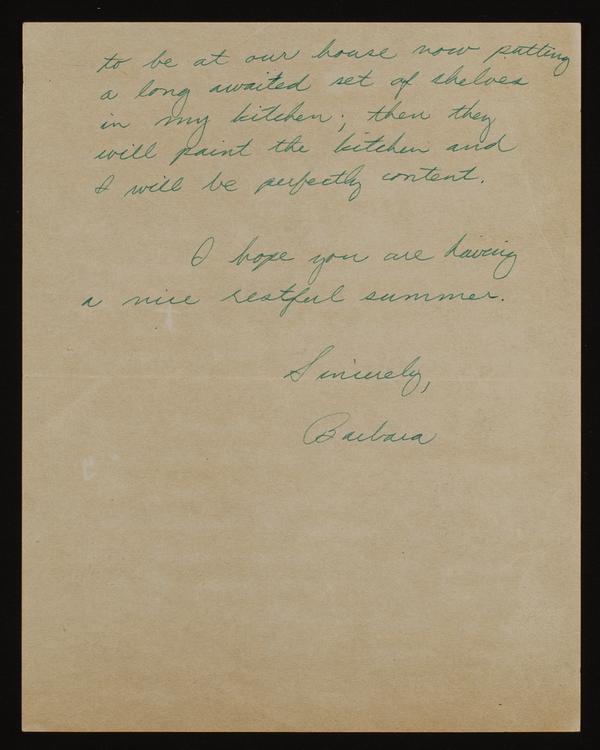 to be at our house now putting
a long awaited set of shelves
in my kitchen; then they
will paint the kitchen and
I will be perfectly content.
I hope you are having
a nice restful summer.
Sincerely,
Barbara